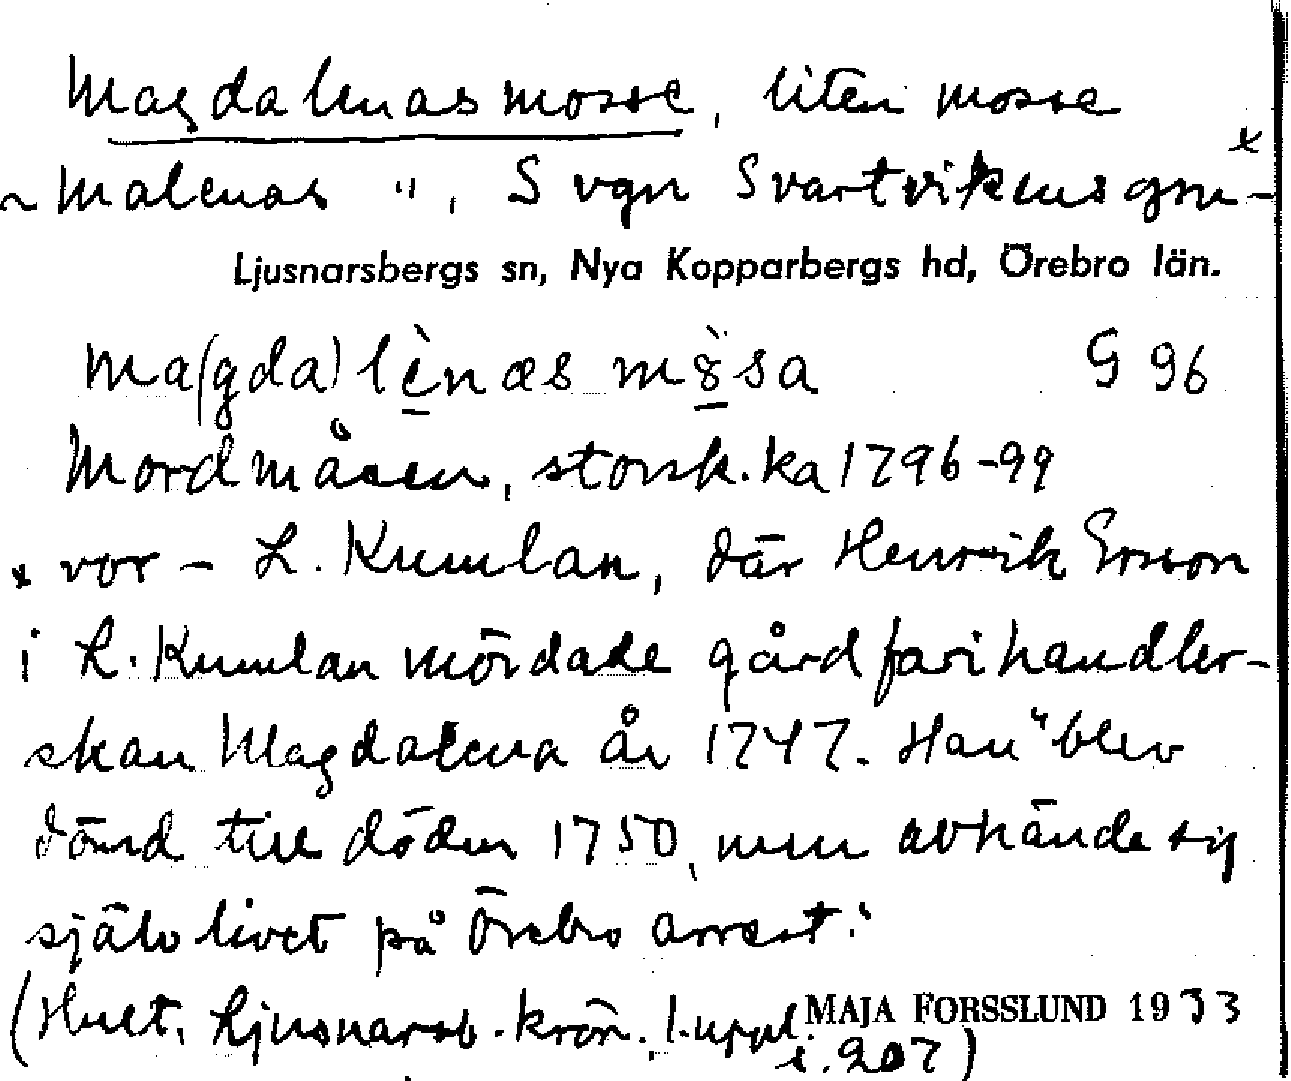 Magdalenasmosse, liten mosse
~ Malenas ", S vgn Svartvikens gru- x
Ljusnarsbergs sn, Nya Kopparbergs hd, Örebro län.
ma(gda)lènæs mo̊̀sa G 96
Mordmåsen, storsk.ka 1796-99
x vor - L. Kumlan, där Henrik Ersson
i L. Kumlan mördade gårdfarihandler-
skan Magdalena år 1747. Han "blev
dömd till döden 1750, men avhände sig
själv livet på Örebro arrest."
(Hult, Ljusnarsb.krön. 1. uppl.
MAJA FORSSLUND 1933
s. 207)